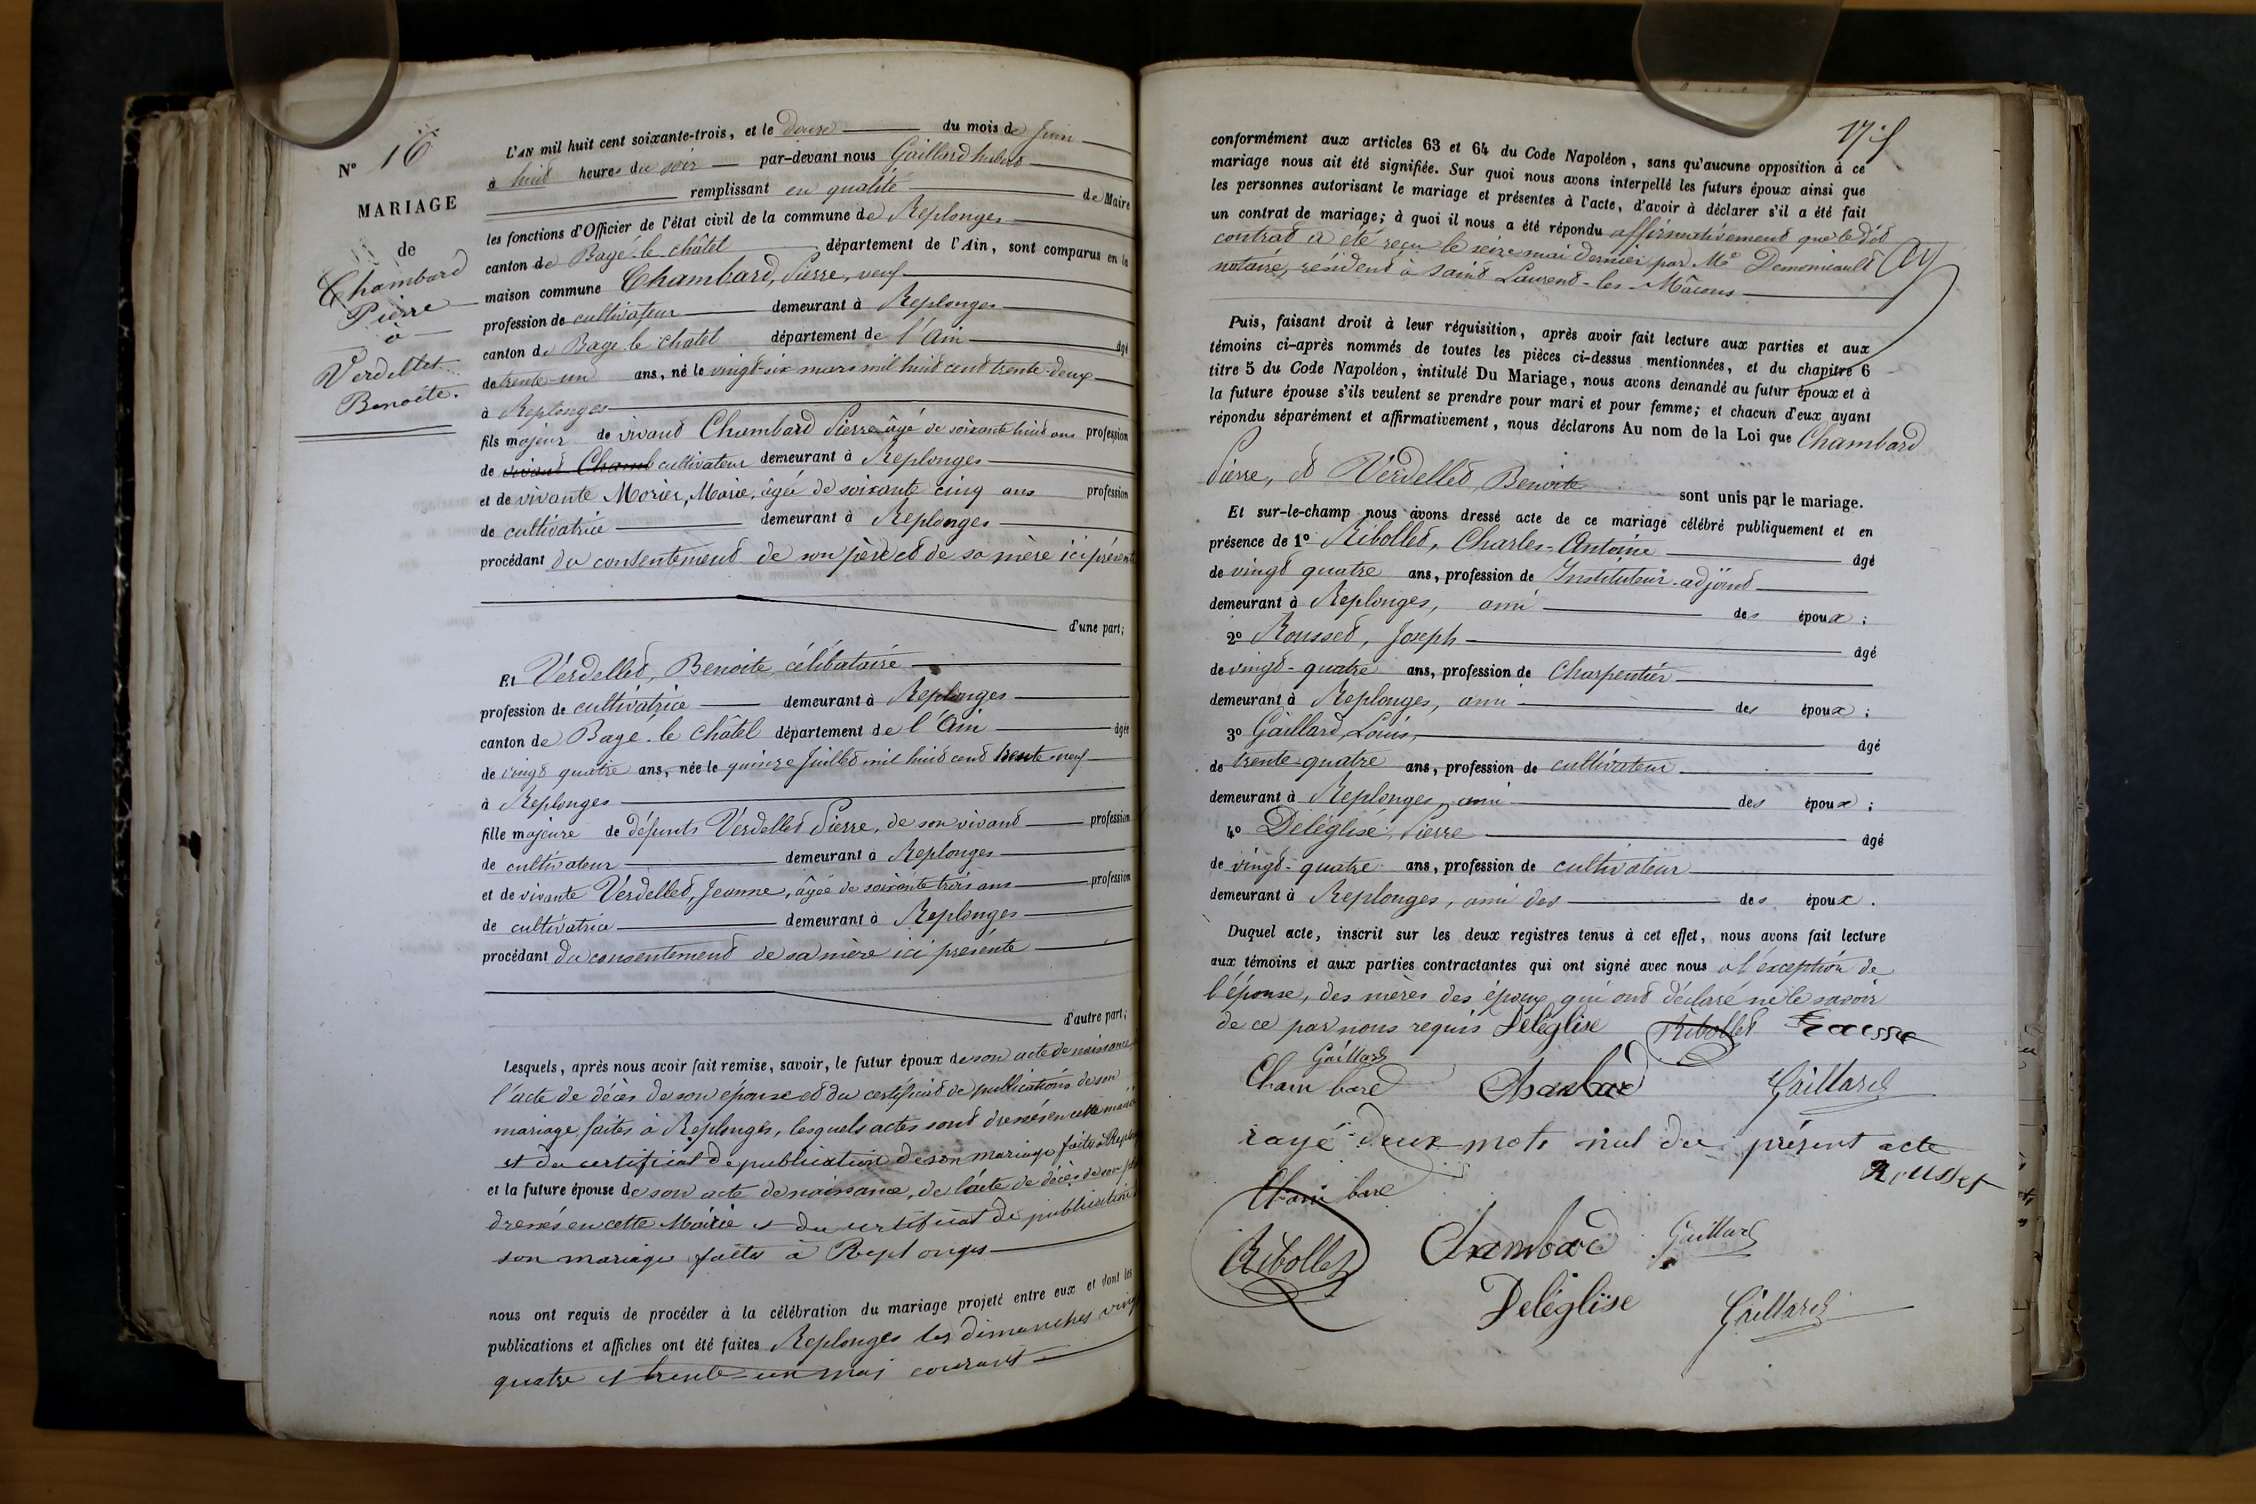 N° 16
MARIAGE
de
Chambard
Pierre
à
Verdellet
Benoite.
L'AN mil huit cent soixante-trois, et le Douze du mois de Juin
à huit heures du soir par-devant nous Gaillard hubert
remplissant en qualité de Maire
les fonctions d'Officier de l'état civil de la commune de Replonges
canton de Bagé-le-châtel département de l'Ain, sont comparus en la
maison commune Chambard, Pierre, veuf
profession de cultivateur demeurant à Replonges
canton de Bagé-le-chatel département de l'Ain âgé
de trente-un ans, né le vingt-six mars mil huit cent trente-deux
à Replonges
fils majeur de vivant Chambard Pierre âgé de soixante huit ans profession
de vivant Chamb cultivateur demeurant à Replonges
et de vivante Morier, Marie, âgée de soixante cinq ans profession
de cultivatrice demeurant à Replonges
procédant du consentement de son père et de sa mère ici présents
d'une part;
Et Verdellet, Benoite, célibataire
profession de cultivatrice demeurant à Replonges
canton de Bagé-le châtel département de l'Ain âgée
de vingt quatre ans, née le quinze Juillet mil huit cent trente neuf
à Replonges
fille majeure de défunts Verdellet Pierre, de son vivant profession
de cultivateur demeurant à Replonges
et de vivante Verdellet, Jeanne, âgée de soixante trois ans profession
de cultivatrice demeurant à Replonges
procédant du consentement de sa mère ici présente
d'autre part;
Lesquels, après nous avoir fait remise, savoir, le futur époux de son acte de naissance
l'acte de décès de son épouse et du certificat de publications de son
mariage faites à Replonges, lesquels actes sont dressés en cette mairie
et du certificat de publication de son mariage faite à Replonges
et la future épouse de son acte de naissance, de l'acte de décès de son père
dressés en cette Mairie et du certificat de publication
son mariage faites à Replonges
nous ont requis de procéder à la célébration du mariage projeté entre eux et dont les
publications et affiches ont été faites Replonges les dimanches vingt
quatre et trente-un mai courant
conformément aux articles 63 et 64 du Code Napoléon, sans qu'aucune opposition à ce
mariage nous ait été signifiée. Sur quoi nous avons interpellé les futurs époux ainsi que
les personnes autorisant le mariage et présentes à l'acte, d'avoir à déclarer s'il a été fait
un contrat de mariage; à quoi il nous a été répondu affirmativement que le dit
contrat a été reçu le seize mai dernier par Me Demeniault
notaire, résident à Saint Laurent-les-Mâcons
Puis, faisant droit à leur réquisition, après avoir fait lecture aux parties et aux
témoins ci-après nommés de toutes les pièces ci-dessus mentionnées, et du chapitre 6
titre 5 du Code Napoléon, intitulé Du Mariage, nous avons demandé au futur époux et à
la future épouse s'ils veulent se prendre pour mari et pour femme; et chacun d'eux ayant
répondu séparément et affirmativement, nous déclarons Au nom de la Loi que Chambard
Pierre, et Verdellet, Benoite sont unis par le mariage.
Et sur-le-champ nous avons dressé acte de ce mariage célébré publiquement et en
présence de 1° Ribollet, Charles-Antoine âgé
de vingt quatre ans, profession de Instituteur-adjoint
demeurant à Replonges, ami des époux;
2° Rousset, Joseph âgé
de vingt-quatre ans, profession de Charpentier
demeurant à Replonges, ami des époux;
3° Gaillard, Louis, âgé
de trente-quatre ans, profession de cultivateur
demeurant à Replonges, ami des époux;
4° Deléglise, Pierre âgé
de vingt-quatre ans, profession de cultivateur
demeurant à Replonges, ami des des époux.
Duquel acte, inscrit sur les deux registres tenus à cet effet, nous avons fait lecture
aux témoins et aux parties contractantes qui ont signé avec nous à l'exception de
l'épouse, des mères des époux qui ont déclaré ne le savoir
de ce par nous requis Deléglise Ribollet
Gaillard
Chambard Chambard Gaillard
rayé deux mots nul du présent acte
Rousset
Chambard
Ribollet Chambard Gaillard
Deléglise Gaillard